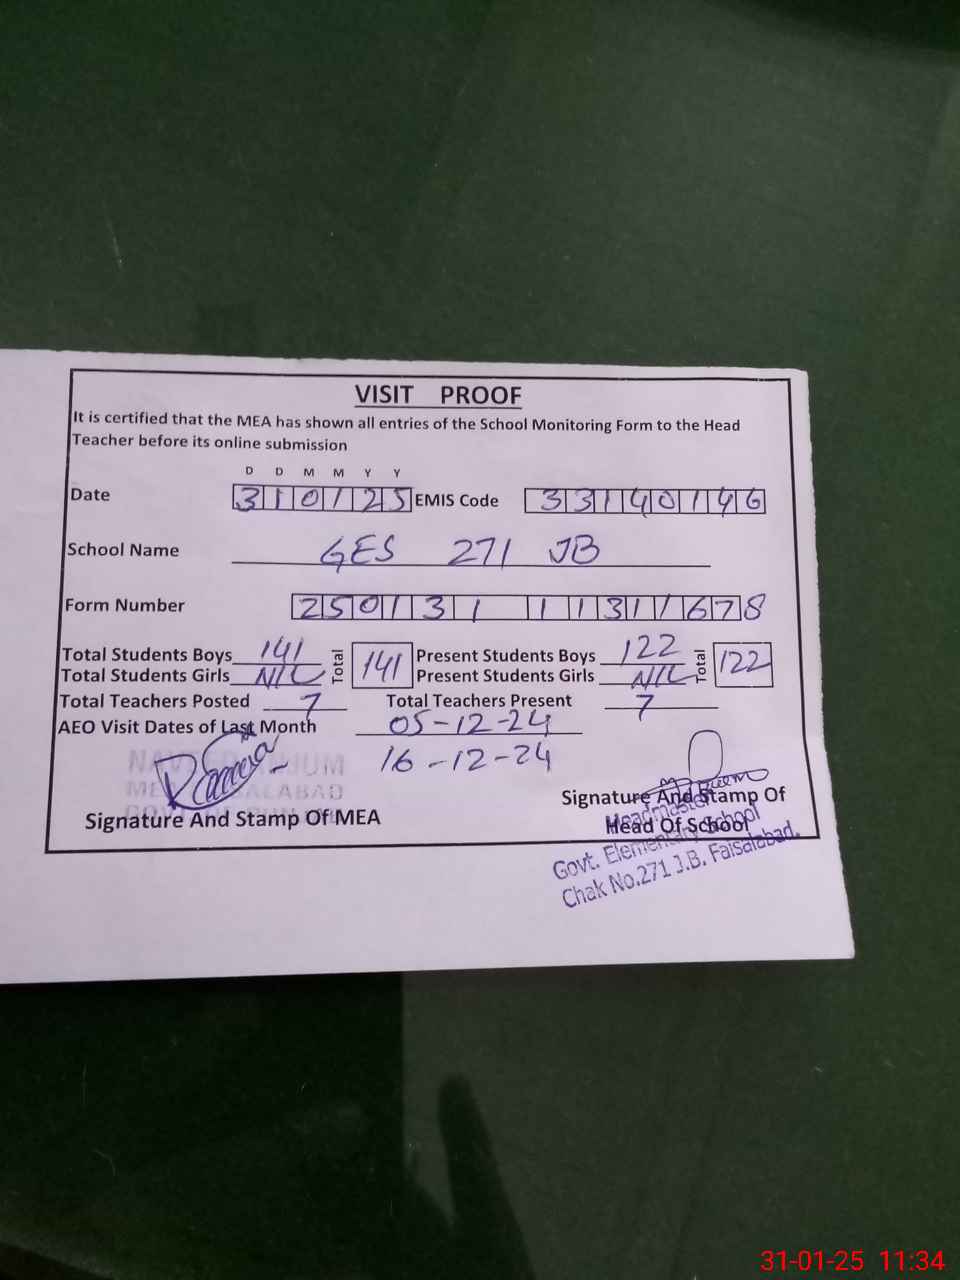 VISIT PROOF
It is certified that the MEA has shown all entries of the School Monitoring Form to the Head
Teacher before its online submission
D D M M Y Y
Date 310125 EMIS Code 33140146
School Name GES 271 JB
Form Number 250131 11311678
Total Students Boys 141 Total 141 Present Students Boys 122 Total 122
Total Students Girls NIL Present Students Girls NIL
Total Teachers Posted 7 Total Teachers Present 7
AEO Visit Dates of Last Month 05-12-24
16-12-24
Signature And Stamp Of MEA
Signature And Stamp Of
Head Of School
Headmaster
Govt. Elementary School
Chak No.271 J.B. Faisalabad.
31-01-25 11:34